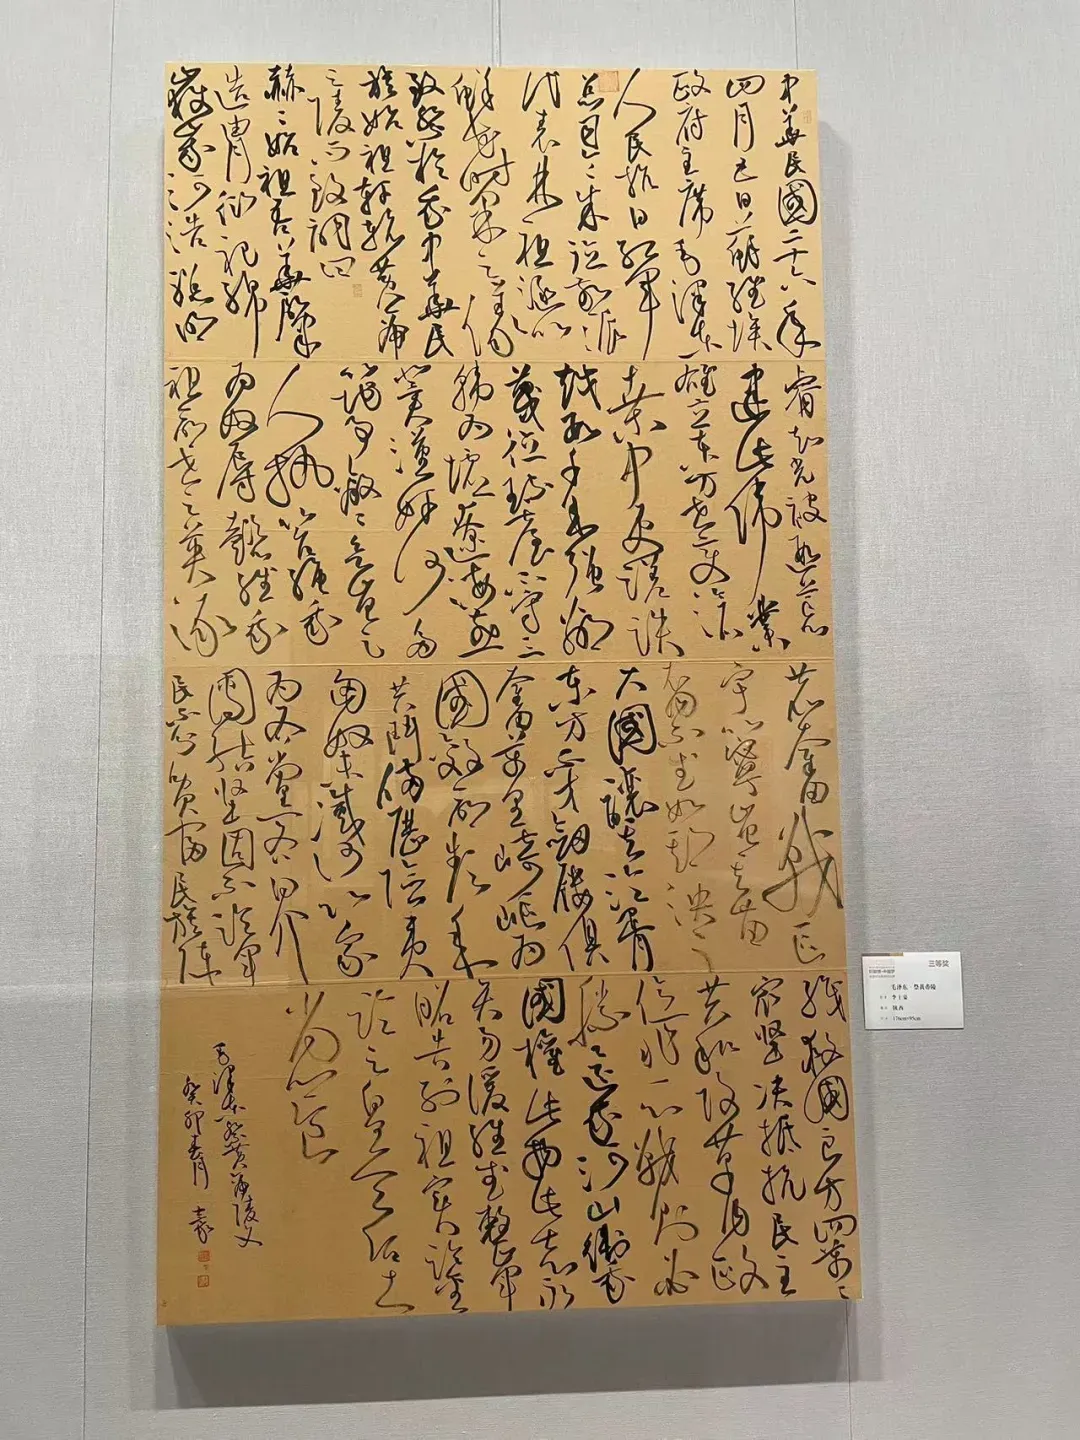 中華民國二十六年
四月五日蘇維埃
政府主席毛澤東
人民抗日紅軍
總司令朱德敬派
代表林祖涵以
鮮花時果之儀
致祭於我中華民
族始祖軒轅黃帝
之陵而致詞曰
赫〻始祖吾華肇
造胄衍祀綿
嶽峨河浩聰明
睿知光被遐荒
建此偉業
雄立東方世變滄
桑中更蹉跌
越數千年強鄰
蔑德琉臺不守三
韓為墟遼海燕
冀漢奸何多
以地事敵〻欲豈足
人執笞繩我
為奴辱懿維我
祖命世之英涿
鹿奮戰區
宇以寧豈其苗
裔不武如斯泱〻
大國讓其淪胥
東等不才劍屨俱
奮萬里崎嶇為
國效命頻年
苦鬥備歷險夷
匈奴未滅何以家
為各黨各界
團結堅固不論軍
民不分貧富民族陣
綫救國良方四萬〻
眾堅決抵抗民主
共和改革內政
億兆一心戰則必
勝還我河山衛我
國權此物此志永
矢勿諼經武整軍
昭告列祖實鑒
臨之皇天后土
尚饗
毛澤東祭黃帝陵文
癸卯春月
三等奖
毛泽东·祭黄帝陵
陕西
176cm×95cm